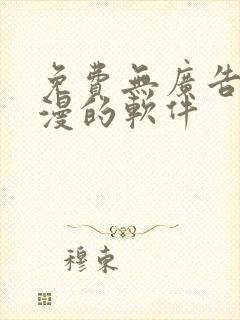 免費無廣告
漫的軟件
穆東